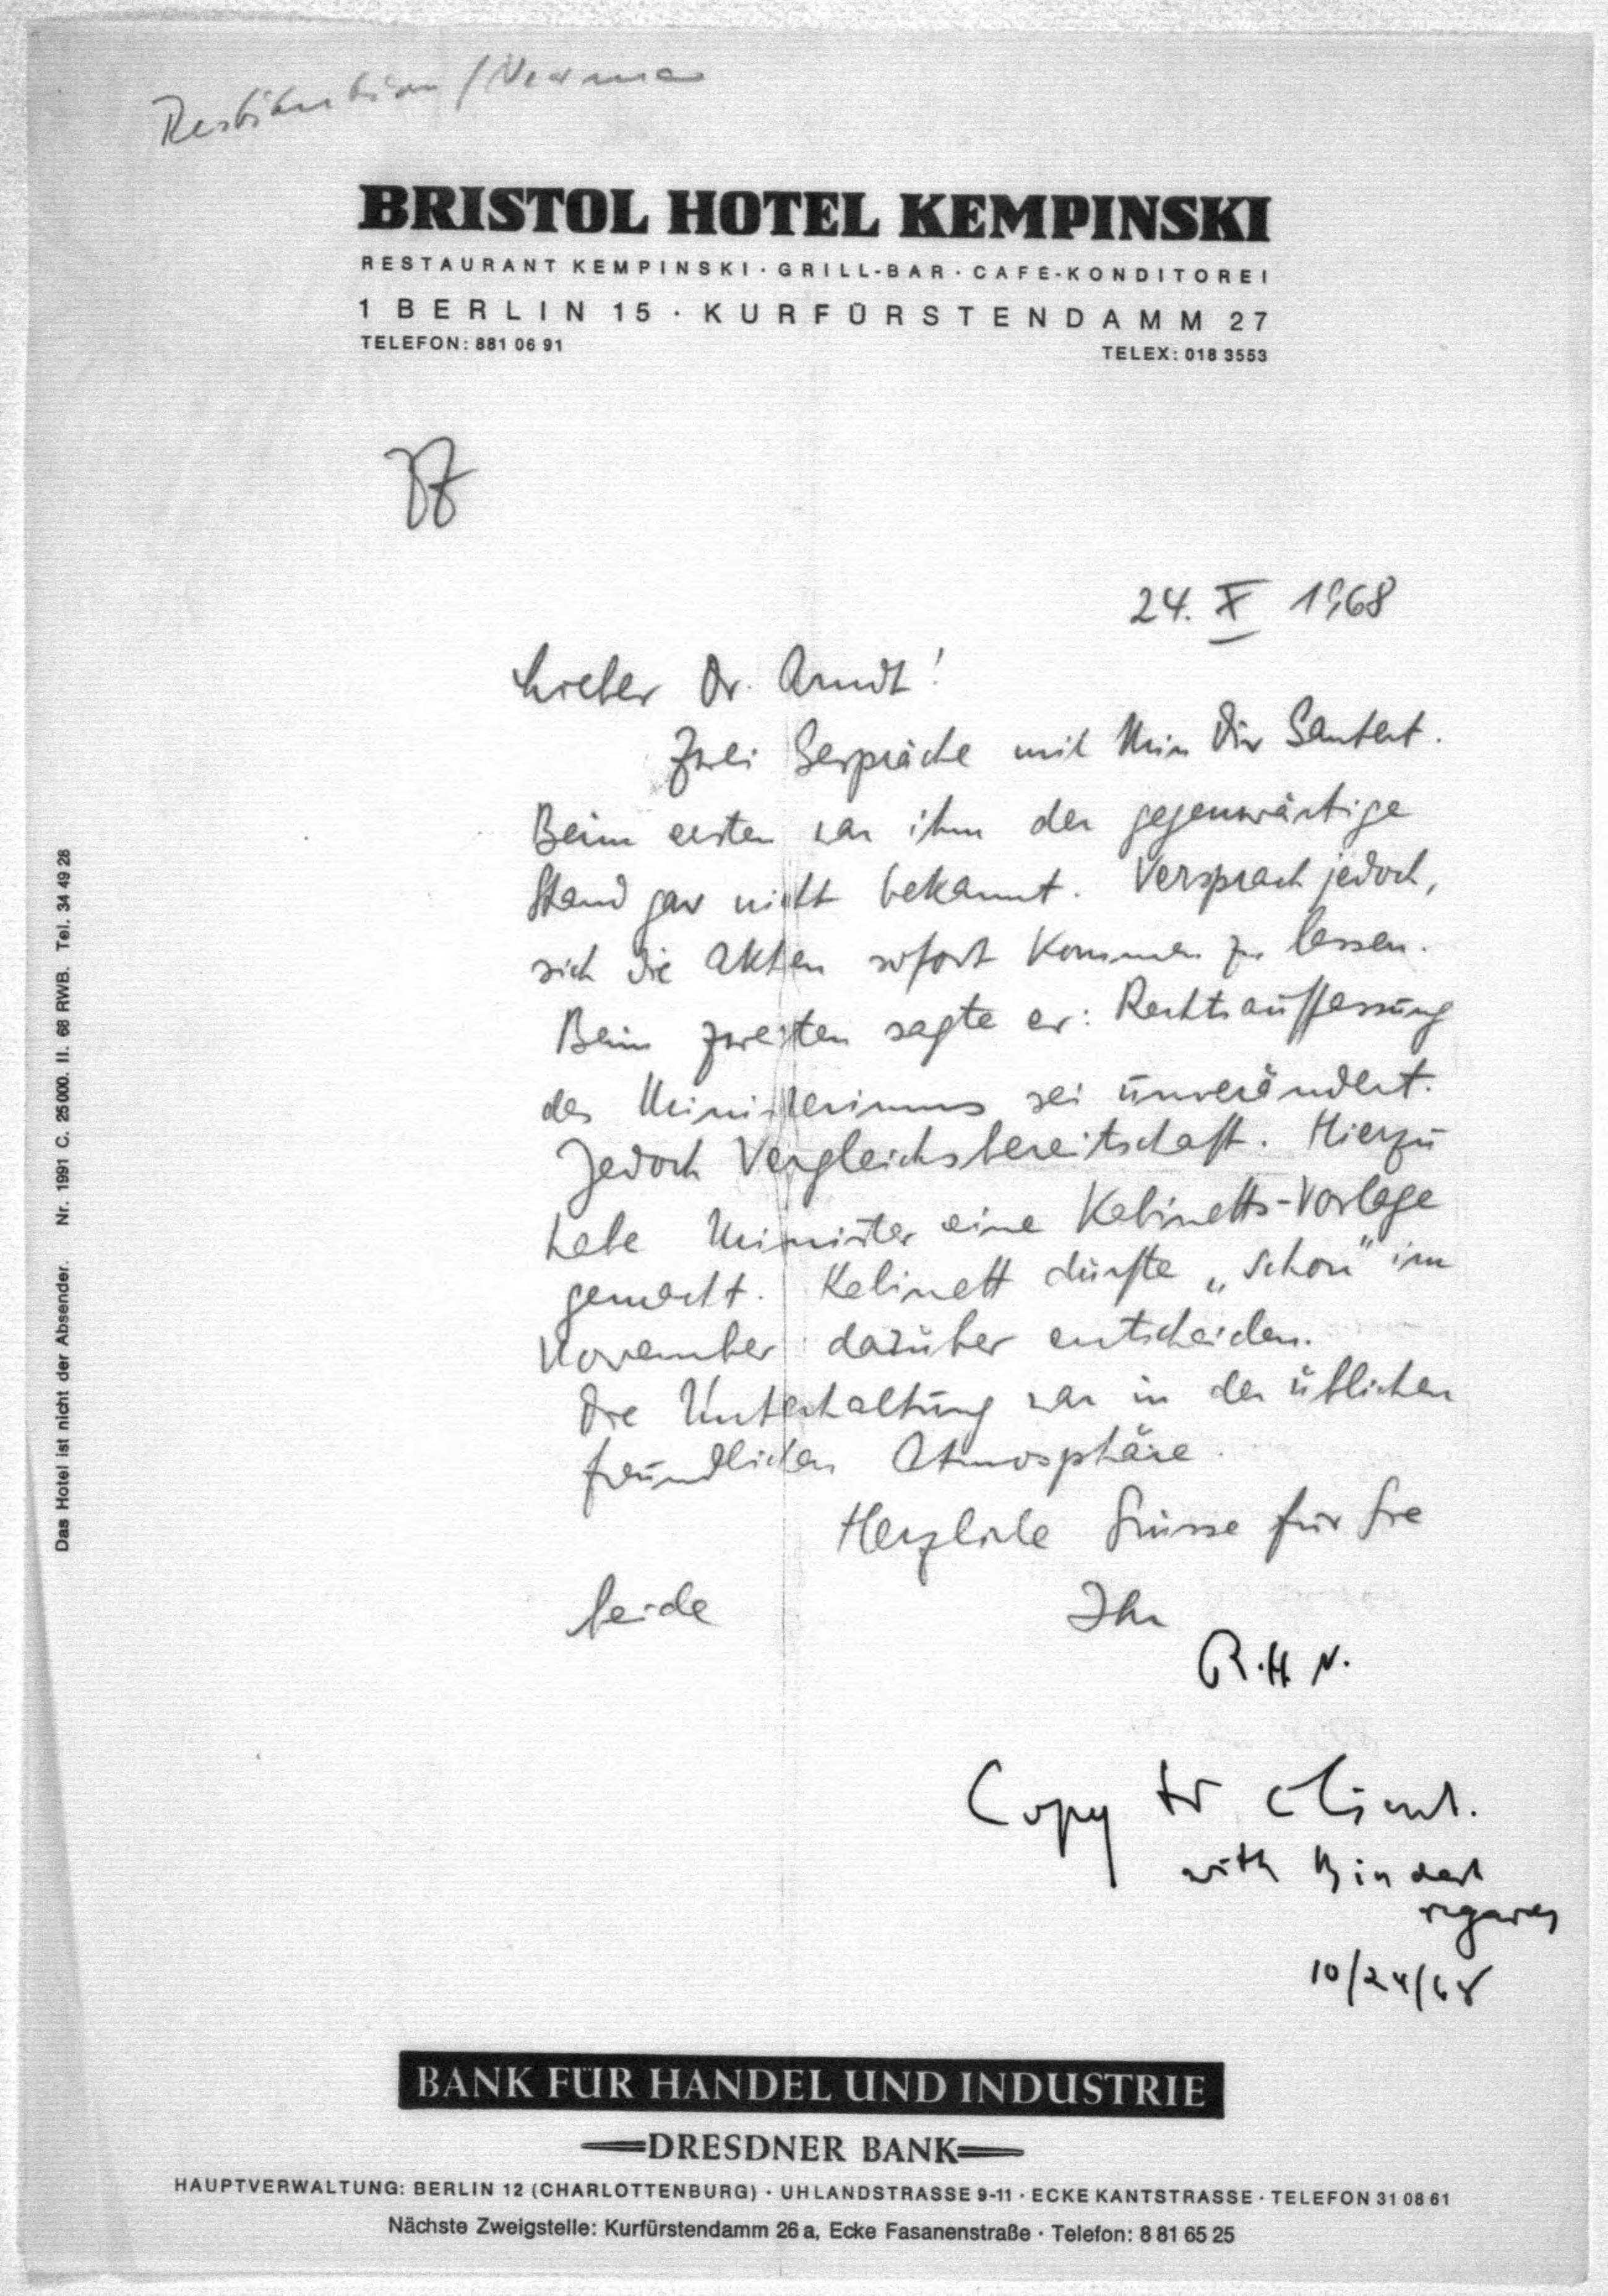 Restitution /
BRISTOL HOTEL KEMPINSKI
RESTAURANT KEMPINSKI · GRILL-BAR · CAFÉ-KONDITOREI
1 BERLIN 15 · KURFÜRSTENDAMM 27
TELEFON: 881 06 91
TELEX: 018 3553
24. X 1968
Lieber Dr. Arndt!
Zwei Gespräche mit Min Dir
Beim ersten war ihm der gegenwärtige
Stand gar nicht bekannt. Versprach jedoch,
sich die Akten sofort kommen zu lassen.
Beim zweiten sagte er: Rechtsauffassung
des Ministeriums sei unverändert.
Jedoch Vergleichsbereitschaft. Hierzu
habe Minister eine Kabinetts-Vorlage
gemacht. Kabinett dürfte „schon" im
November darüber entscheiden.
Die Unterhaltung war in der üblichen
freundlichen Atmosphäre.
Herzliche Grüsse für Sie
beide Ihr
R.H.N.
Copy to client.
with kindest
regards
10/24/68
Das Hotel ist nicht der Absender. Nr. 1991 C. 25000. II. 68 RWB. Tel. 34 49 28
BANK FÜR HANDEL UND INDUSTRIE
DRESDNER BANK
HAUPTVERWALTUNG: BERLIN 12 (CHARLOTTENBURG) · UHLANDSTRASSE 9-11 · ECKE KANTSTRASSE · TELEFON 31 08 61
Nächste Zweigstelle: Kurfürstendamm 26 a, Ecke Fasanenstraße · Telefon: 8 81 65 25